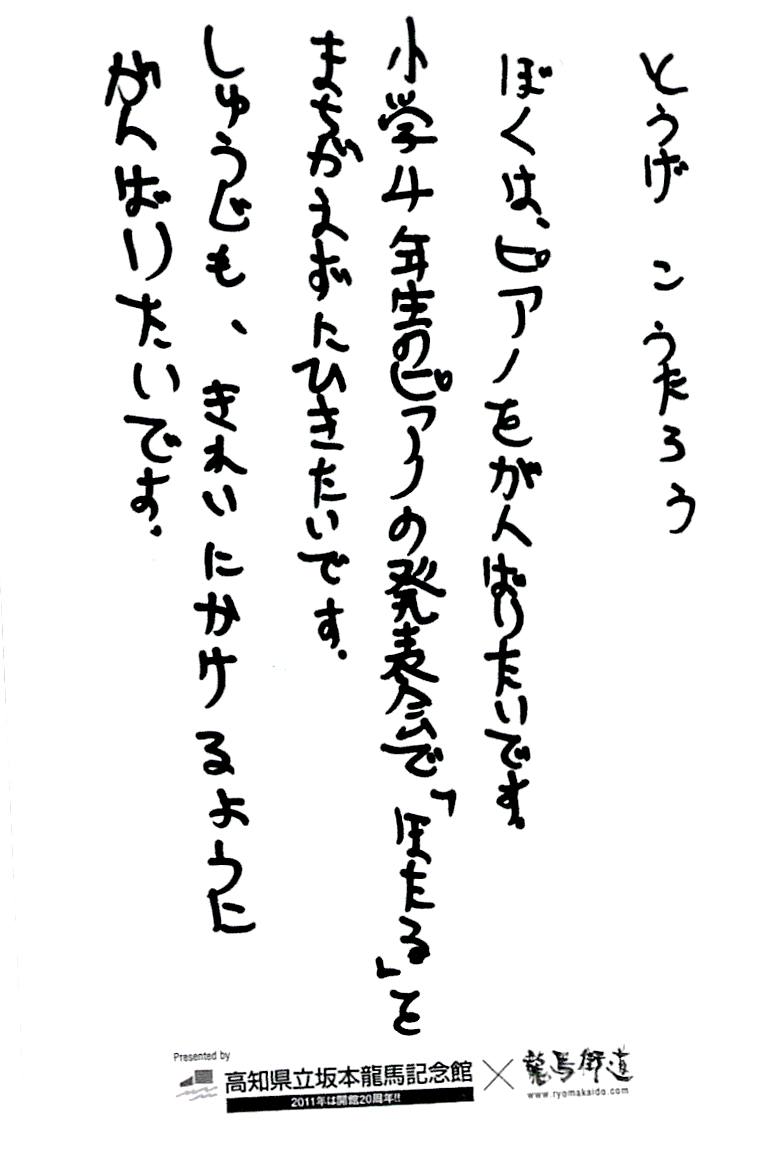 とうげ こうたろう
ぼくは、ピアノをがんばりたいです。
小学4年生のピアノの発表会で「ほたる」を
まちがえずにひきたいです。
しゅうじも、きれいにかけるように
がんばりたいです。
Presented by
高知県立坂本龍馬記念館×龍馬街道
2011年は開館20周年!!
www.ryomakaido.com